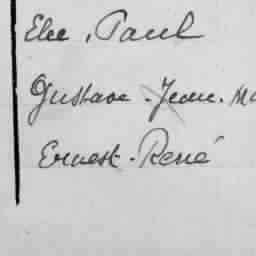 Elie, Paul
Gustave - Jean - Ma
Ernest - René